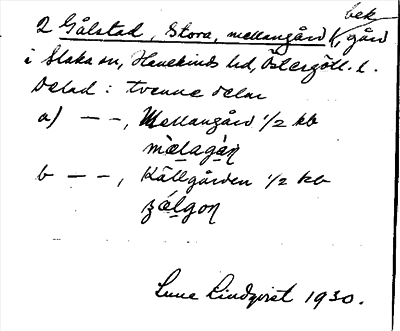 bek
2 Gålstad, Stora, mellangård, gård
i Slaka sn, Hanekinds hd, Östergötl. l.
Delad: tvenne delar
a) – –, Mellangård 1/2 kb
b – –, Källgården 1/2 kb
Sune Lindqvist 1930.